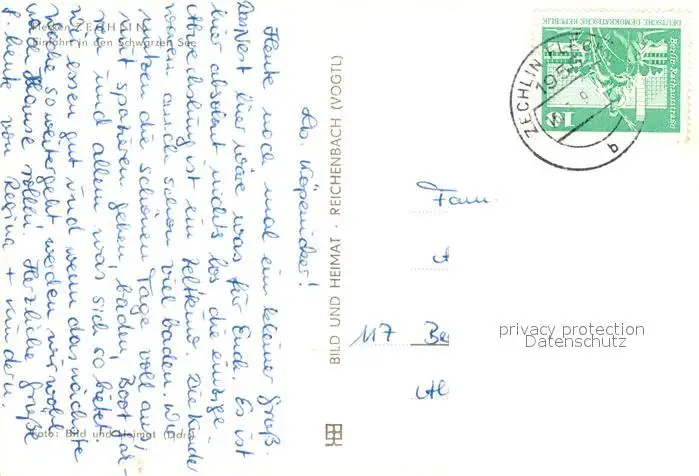 Flecken ZECHLIN
Einfahrt in den Schwarzen See
Lb. Köpenicker!
Heute noch mal ein kleiner Gruß.
Das Nest hier wäre was für Euch. Es ist
hier absolut nichts los die einzige
Abwechslung ist ein Zeltkino. Die Kinder
waren auch schon viel baden. Wir
nutzen die schönen Tage voll aus,
mit spazieren gehen, baden, Boot fah-
ren und allem was sich so bietet.
Wir essen gut und wenn das nächste
Woche so weitergeht werden wir wohl
nach Hause rollen. Herzliche Grüße
f. heute von Regina + Kindern.
Foto: Bild und Heimat
BILD UND HEIMAT · REICHENBACH (VOGTL)
DEUTSCHE DEMOKRATISCHE REPUBLIK
Berlin, Rathausstraße
10
ZECHLIN
195
a
Fam.
A
117 Be
Al
privacy protection
Datenschutz